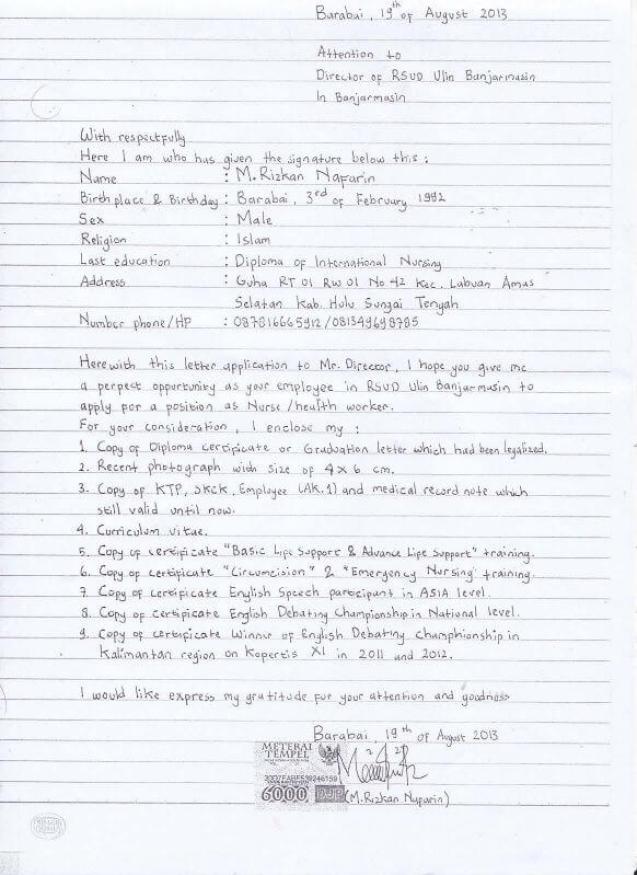 Barabai, 19th of August 2013
Attention to
Director of RSUD Ulin Banjarmasin
In Banjarmasin
With respectfully
Here I am who has given the signature below this :
Name : M. Rizkan Naparin
Birthplace & Birthday : Barabai, 3rd of February 1992
Sex : Male
Religion : Islam
Last education : Diploma of International Nursing
Address : Guha RT 01 RW 01 No 42 Kec. Labuan Amas
Selatan Kab. Hulu Sungai Tengah
Number phone/HP : 087816665912 /081349698785
Herewith this letter application to Mr. Director, I hope you give me
a perpect opportunity as your employee in RSUD Ulin Banjarmasin to
apply for a position as Nurse/health worker.
For your consideration, I enclose my :
1. Copy of Diploma certificate or Graduation letter which had been legalized.
2. Recent photograph with size of 4 x 6 cm.
3. Copy of KTP, SKCK, Employee (AK.1) and medical record note which
still valid until now.
4. Curriculum vitae.
5. Copy of certificate "Basic Life Support & Advance Life Support" training.
6. Copy of certificate "Circumcision" & "Emergency Nursing" training.
7. Copy of certificate English Speech participant in ASIA level.
8. Copy of certificate English Debating Championship in National level.
9. Copy of certificate Winner of English Debating Champhionship in
Kalimantan region on Kopertis XI in 2011 and 2012.
I would like express my gratitude for your attention and goodness
Barabai, 19th of August 2013
METERAI
TEMPEL
6000 DJP
(M. Rizkan Naparin)